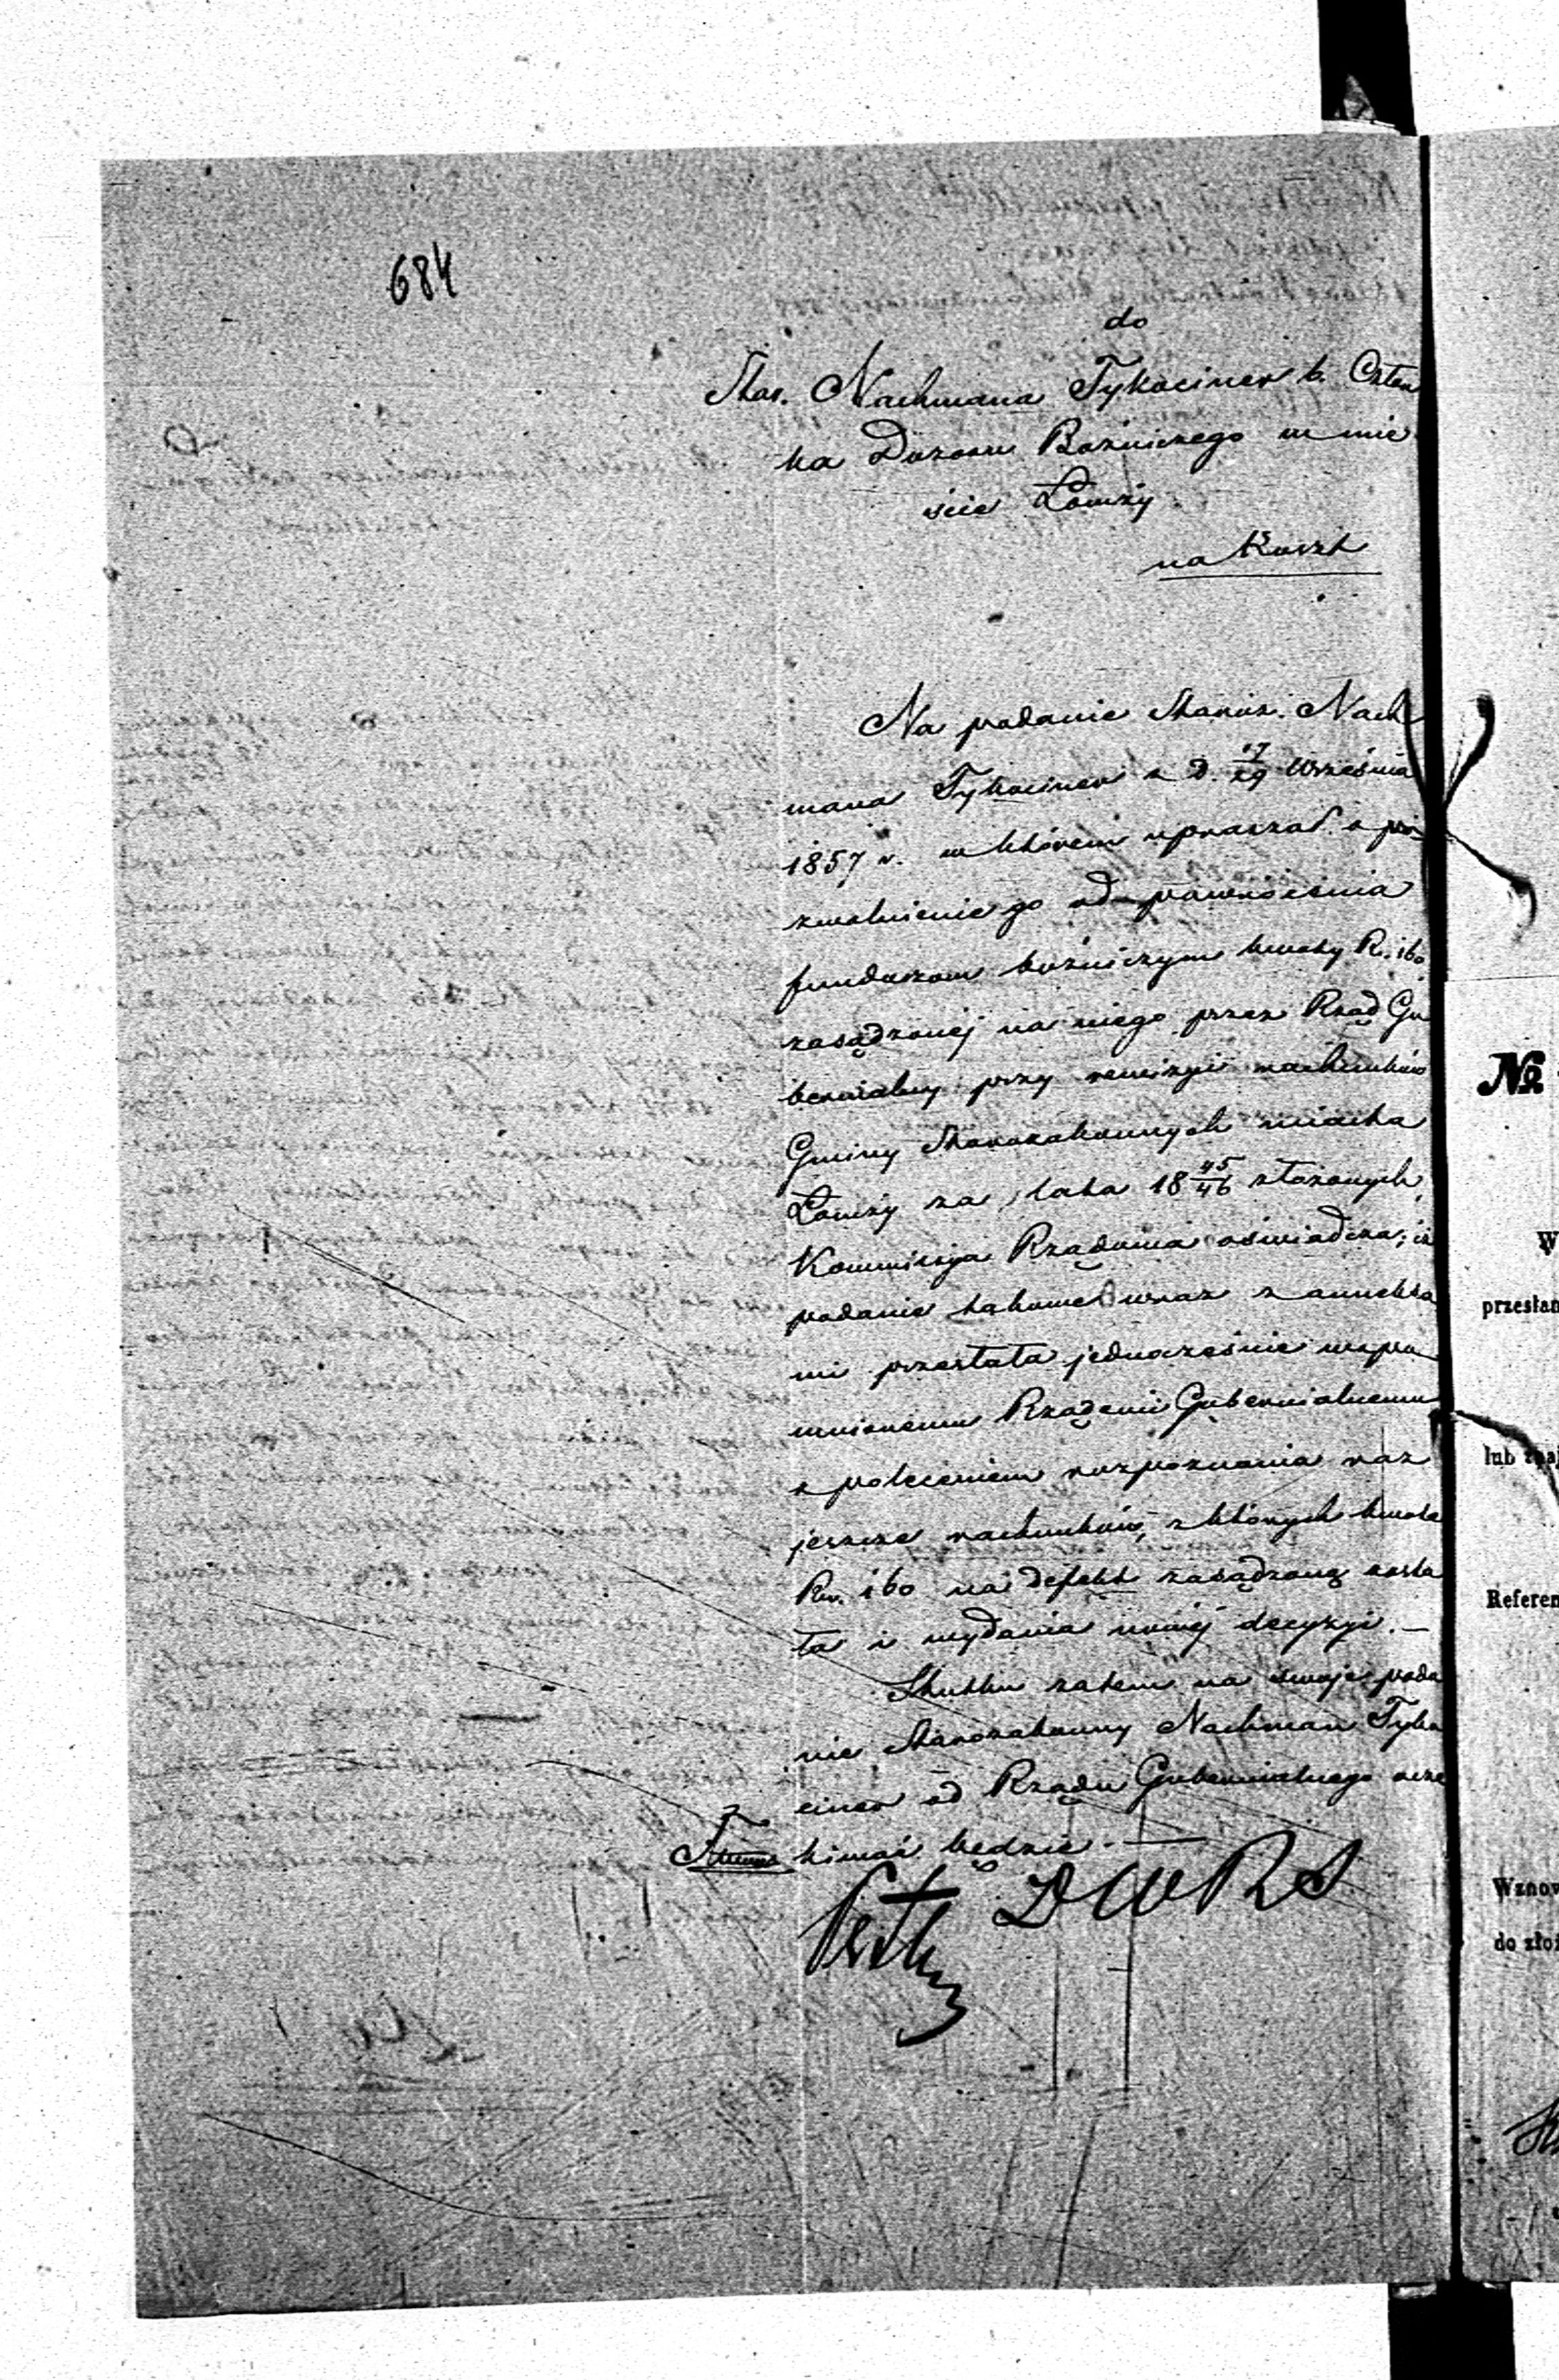 684
do
Star. Nachmana Tykociner b. Człon
ka Dozoru Bożniczego w mie
ście Łomży
na Koszt
Na podanie Staroz. Nach
mana Tykociner z d. 17/29 Września
1857 r. w którem upraszał o
zwolnienie go od powrócenia
funduszom bożniczym kwoty R. 160
zasądzonej na niego przez Rząd Gu
bernialny przy rewizyi rachunków
Gminy Starozakonnych miasta
Łomży za lata 18 45/46 złożonych,
Kommissya Rządowa oświadcza; iż
podanie takowe wraz z annexa
mi przesłała jednocześnie wspo
mnionemu Rządowi Gubernialnemu
z poleceniem rozpoznania raz
jeszcze rachunków, z których kwota
Rs. 160 na defekt zasądzoną zosta
ła i wydania nowej decyzyi. —
Skutku zatem na swoje poda
nie Starozakonny Nachman Tyko
ciner od Rządu Gubernialnego ocze
kiwać będzie. —
D W R S
№
W
przesłan
lub znaj
Referen
Wznow
do złoż